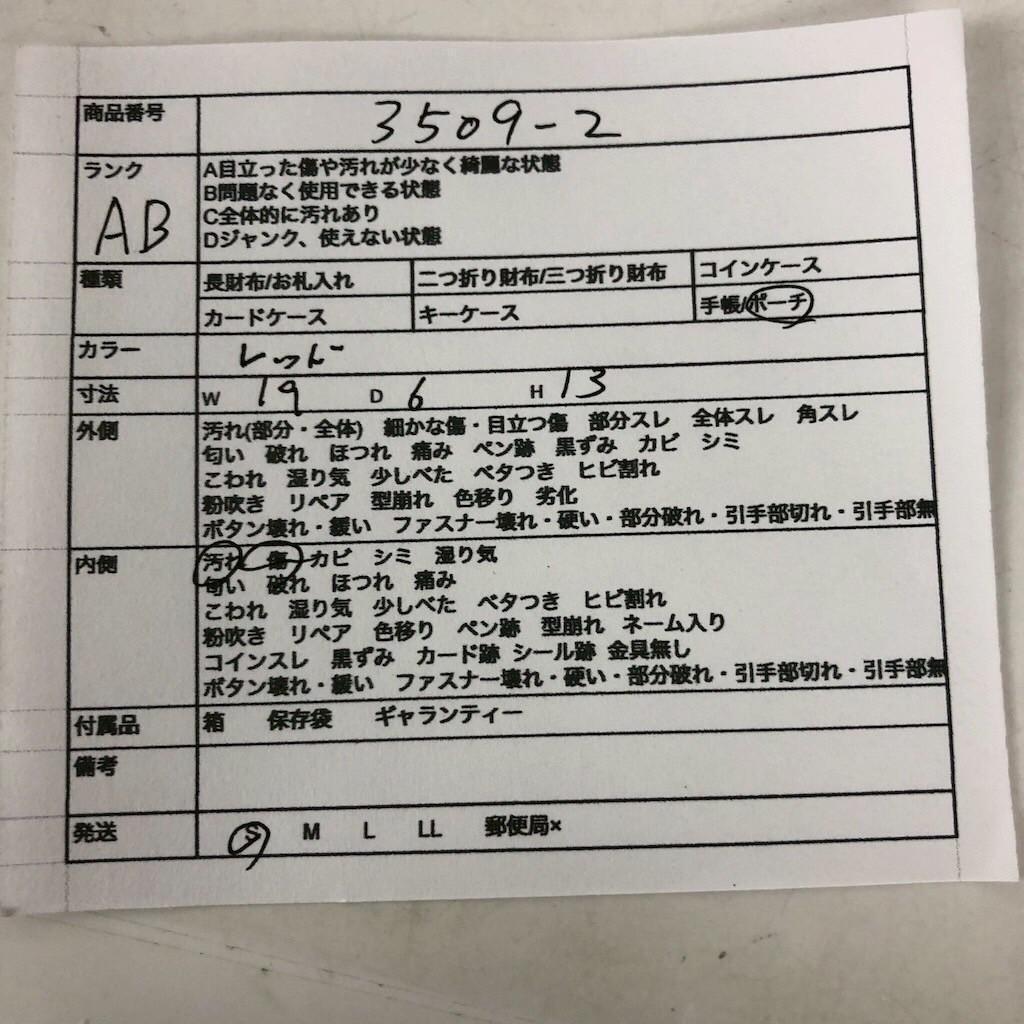 商品番号 3509-2
ランク AB
A目立った傷や汚れが少なく綺麗な状態
B問題なく使用できる状態
C全体的に汚れあり
Dジャンク、使えない状態
種類 長財布/お札入れ 二つ折り財布/三つ折り財布 コインケース
カードケース キーケース 手帳/ポーチ
カラー レッド
寸法 W 19 D 6 H 13
外側 汚れ(部分・全体) 細かな傷・目立つ傷 部分スレ 全体スレ 角スレ
匂い 破れ ほつれ 痛み ペン跡 黒ずみ カビ シミ
こわれ 湿り気 少しべた ベタつき ヒビ割れ
粉吹き リペア 型崩れ 色移り 劣化
ボタン壊れ・緩い ファスナー壊れ・硬い・部分破れ・引手部切れ・引手部無
内側 汚れ 傷 カビ シミ 湿り気
匂い 破れ ほつれ 痛み
こわれ 湿り気 少しべた ベタつき ヒビ割れ
粉吹き リペア 色移り ペン跡 型崩れ ネーム入り
コインスレ 黒ずみ カード跡 シール跡 金具無し
ボタン壊れ・緩い ファスナー壊れ・硬い・部分破れ・引手部切れ・引手部無
付属品 箱 保存袋 ギャランティー
備考
発送 S M L LL 郵便局×